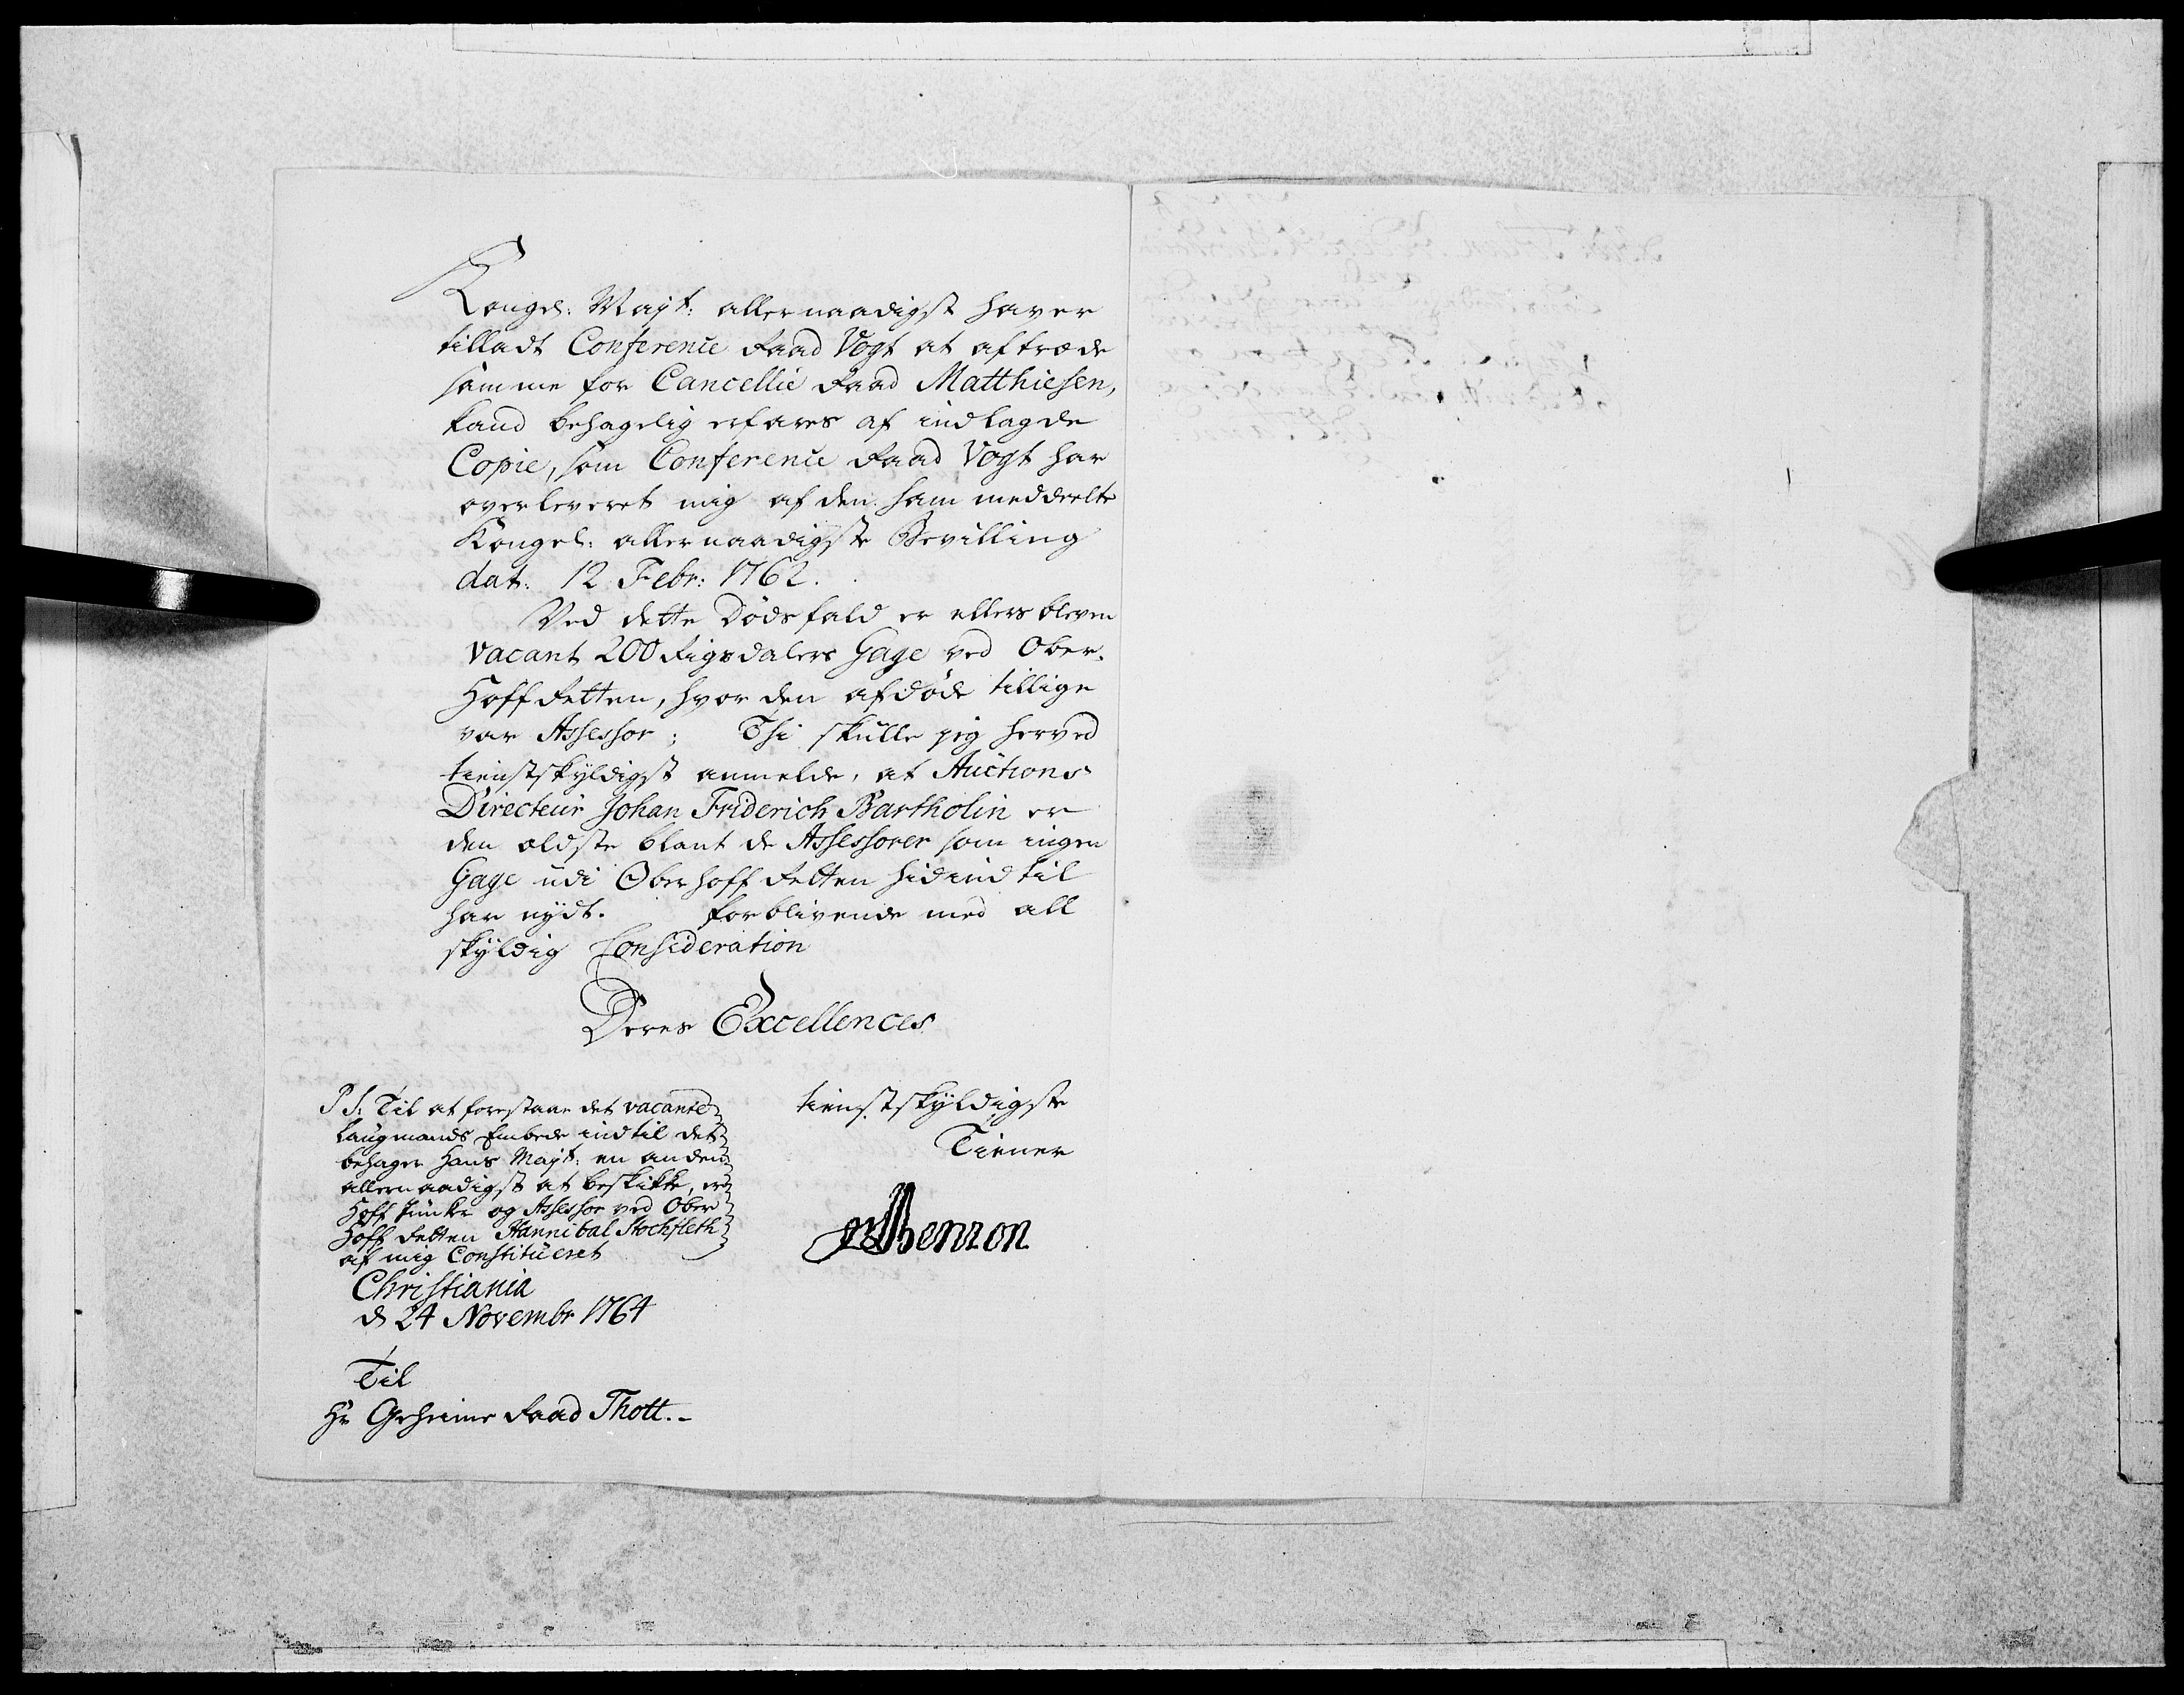 Kongel: Mayt: allernaadigst haver
tilladt Conference Raad Vogt at aftræde
samme for Cancellie Raad Matthiesen,
kand behagelig erfares af indlagde
Copie, som Conference Raad Vogt har
overleveret mig af den ham meddeelte
Kongel: allernaadigste Bevilling
dat: 12 Febr: 1762.
Ved dette Dødsfald er ellers bleven
vacant 200 Rigsdalers Gage ved Ober-
Hoff Retten, hvor den afdøde tillige
var Assessor; Thi skulle jeg herved
tienstskyldigst anmelde, at Auctions
Directeur Johan Friderich Bartholin er
den ældste blant de Assessorer som ingen
Gage udi Oberhoff Retten hidindtil
har nydt. forblivende med all
skyldig Consideration
Deres Excellences
tienstskyldigste
Tiener
Benzon
PS: Til at forestaae det vacante
Laugmands Embede indtil det
behager Hans Mayt: en anden
allernaadigst at beskikke, er
Hoff Junker og Assessor ved Ober
Hoff Retten Hannibal Stockfleth
af mig Constitueret
Christiania
d 24 Novembr 1764
Til
Hr Geheime Raad Thott.-